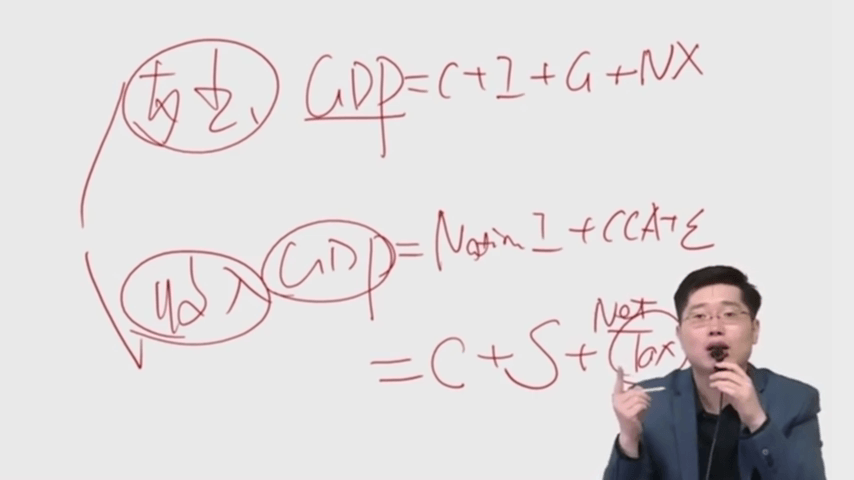 支出 GDP=C+I+G+NX
收入 GDP=Nation I+CCA+ε
=C+S+Net Tax